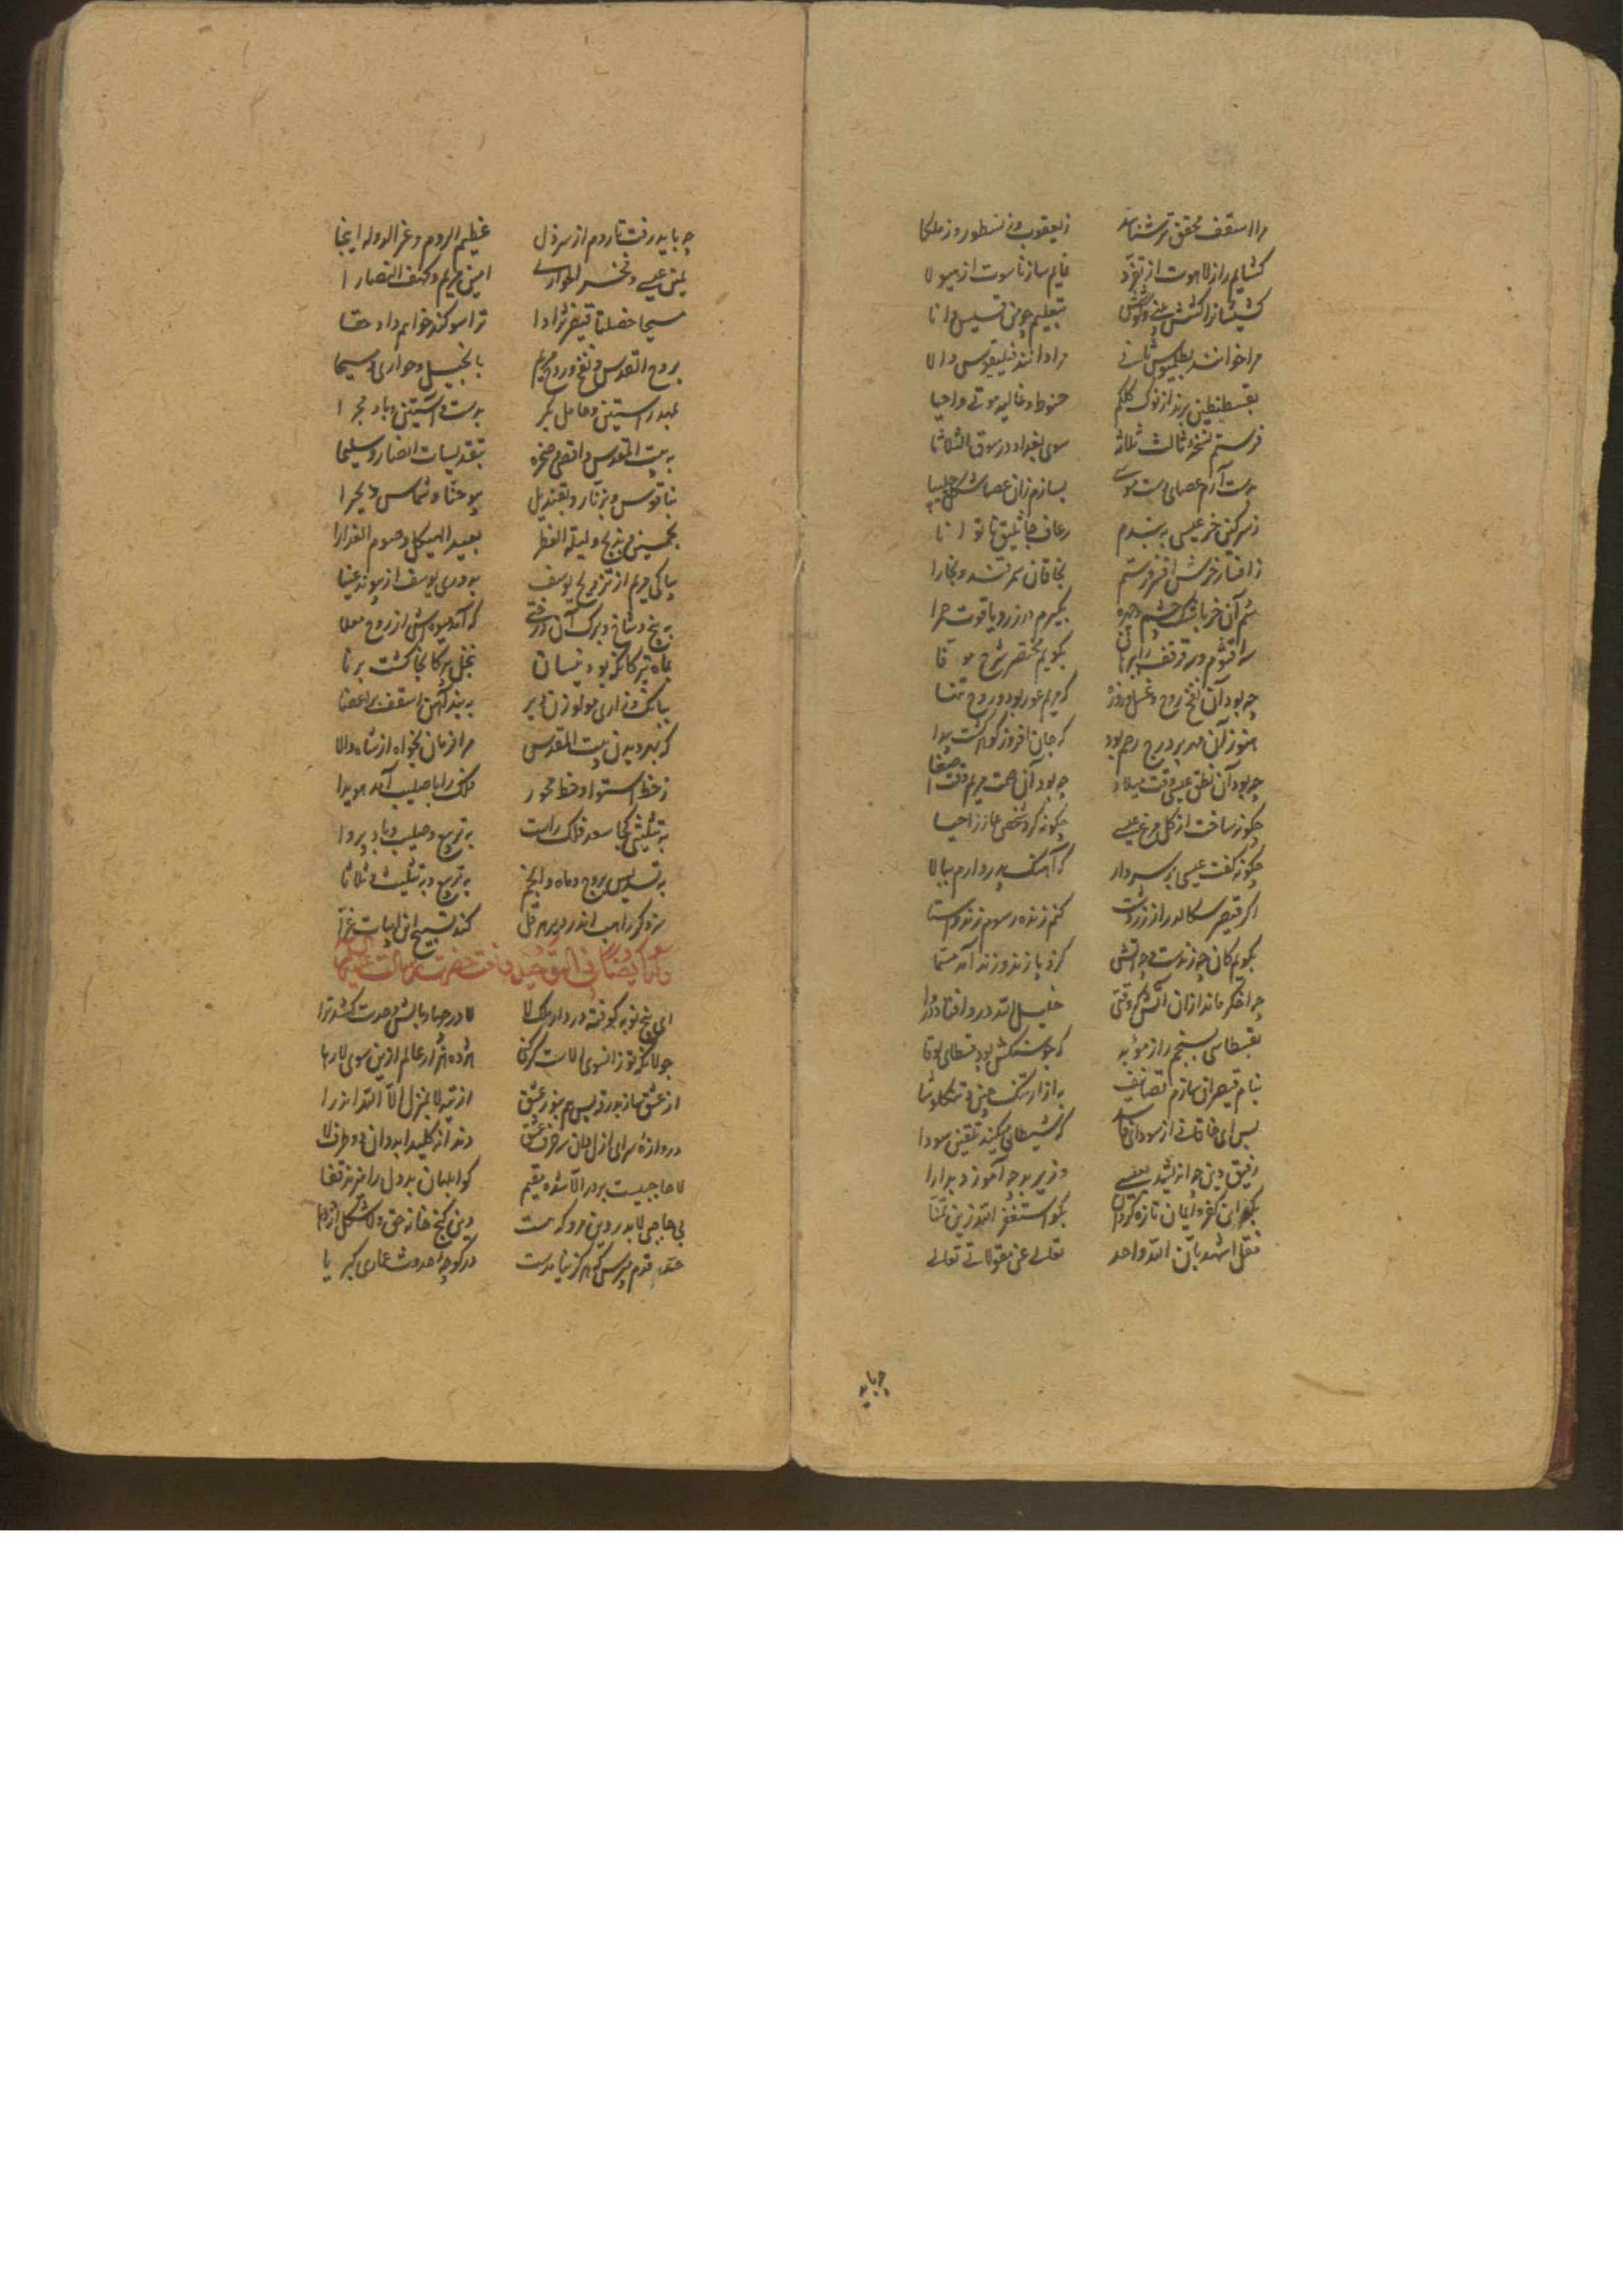 مرا اسقف محقق‌تر شناسد ز یعقوب و ز نسطور و ز ملکا
کشایم راز لاهوت از تفرد نمایم ساز ناسوت از هیولا
کشیشانرا کشش بینی و کوشش بتعلیم چو من قسیس دانا
مرا خوانند بطلمیوس ثانی مرا دانند فیلیقوس والا
بقسطنطین برند از نوک کلکم حنوط و غالیه موتی و احیا
فرستم نسخه ثالث ثلاثه سوی بغداد در سوق الثلاثا
بدست آرم عصای دست موسی بسازم زان عصا شکل چلیپا
ز سرکین خر عیسی ببندم رعاف جاثلیق ناتوانا
ز افسار خرش افسر فرستم بخاقان سمرقند و بخارا
سم آن خر باشک چشم و چهره بگیرم در زر و یاقوت حمرا
سه اقنوم و سه قرقف را ببرهان بگویم مختصر شرح موفا
چه بود آن نفخ روح و غسل و روزه که مریم عور بود و روح تنها
هنوز آن مهر بر درج رحم بود که جان افروز گوهر گشت پیدا
چه بود آن نطق عیسی وقت میلاد چه بود آن صمت مریم وقت اصغا
چگونه ساخت از گل مرغ عیسی چگونه کرد شخص عازر احیا
چگونه گفت عیسی بر سر دار که آهنگ پدر دارم ببالا
اگر قیصر سگالد راز زردشت کنم زنده رسوم زند و استا
بگویم کان چه زندست و چه آتش کزو پازند و زند آمد مسما
چه اخگر ماند از آن آتش که وقتی خلیل الله در او افتاد دروا
بقسطاسی بسنجم راز موبد که جو سنگش بود قسطای لوقا
بنام قیصران سازم تصانیف به از ارتنگ چین و تنگلوشا
بس ای خاقانی از سودای فاسد که شیطان میکند تلقین سودا
رفیق دون چه اندیشد بعیسی وزیر بد چه آموزد بدارا
بگو این کفر و ایمان تازه گردان بگو استغفر الله زین تمنا
فقل اشهد بان الله واحد تعالی عن مقولاتی تعالی
چه باید
چه باید رفت تا روم از سر ذل عظیم الروم و عز الدوله اینجا
یمین عیسی و فخر الحواری امین مریم و کهف النصارا
مسیحا خصلتا قیصر نژادا ترا سوگند خواهم داد حقا
بروح القدس و نفخ روح و مریم بانجیل و حواری و مسیحا
بمهد راستین و حامل بکر بدست و آستین و باد مجرا
به بیت المقدس و اقصی و صخره بتقدیسات انصار و شلیخا
بناقوس و بزنار و بقندیل بیوحنا و شماس و بحیرا
بخمسین و بذبح و لیلة الفطر بعید الهیکل و صوم العذارا
بپاکی مریم از تزویج یوسف بدوری یوسف از پیوند عیشا
به بیخ و شاخ و برگ آن درختی که آمد میوه‌اش از روح معلا
بماه تیر کانگه بود نیسان بنخل پیر کانجا گشت برنا
ببانگ و زاری مولوزن از دیر به بند آهن اسقف بر اعضا
که بهر دیدن بیت المقدس مرا فرمان بخواه از شاه والا
ز خط استوا و خط محور فلک را تا صلیب آمد هویدا
به تثلیثی کجا سعد فلک راست به تربیع صلیب باد پروا
به تسدیس بروج و ماه و انجم به تربیع و به تثلیث و ثلاثا
سزد گر راهب اندر دیر هرقل کند تسبیح این ابیات غرا
وله ایضا فی التوحید و نعت حضرت رسالت علیه السلام
ای پنج نوبه کوفته در دار ملک لا لا در چهار بالش وحدت کشد ترا
جولانگه تو زانسوی الاست گر کنی هژده هزار عالم ازین سوی لا رها
از عشق ساز بدرقه پس هم بنور عشق از تیه لا بمنزل الا الله اندرا
دروازه سرای ازل دان سه حرف عشق دندانه کلید ابد دان دو حرف لا
لا حاجبیست بر در الا شده مقیم کو ابلهان بدل را میزند قفا
بی حاجبی لا بدر دین مرو که هست دین گنج خانه حق و لا شکل اژدها
حد قدم مپرس که هرگز نیامدست در کوچه حدوث عماری کبریا